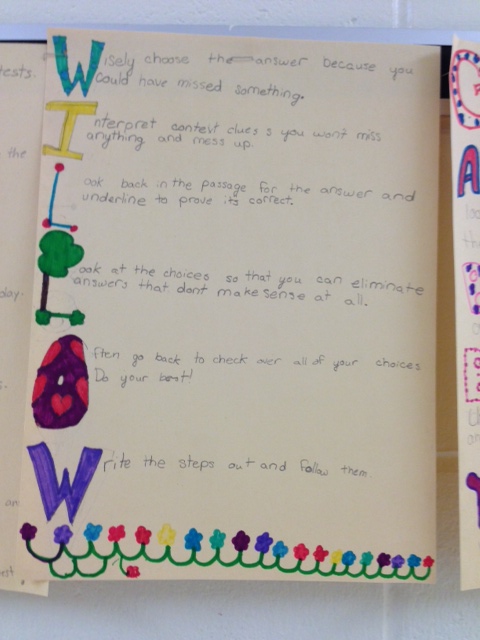 Wisely choose the answer because you
could have missed something.
Interpret context clues s you won't miss
anything and mess up.
Look back in the passage for the answer and
underline to prove its correct.
Look at the choices so that you can eliminate
answers that dont make sense at all.
Often go back to check over all of your choices
Do your best!
Write the steps out and follow them.
tests.
the
day.
an